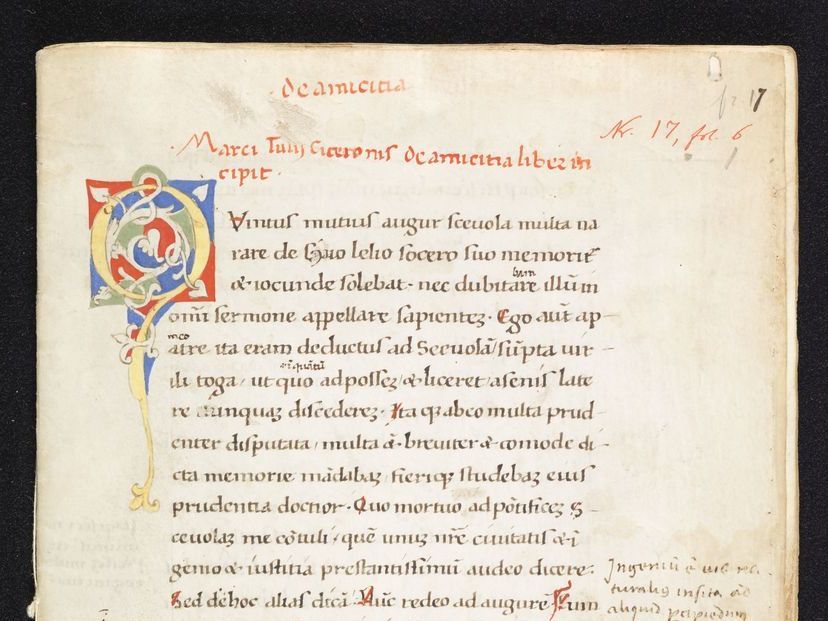 De amicitia
fr 17
Nr. 17, fol. 6
1
Marci Tulij Ciceronis De amicitia liber in
cipit.
QVintus mutius augur sceuola multa na
rare de Gaio lelio socero suo memorit͛
& iocunde solebat. nec dubitare illũ in
bam
om̃i sermone appellare sapientez. Ego aũt ap-
meo
atre ita eram deductus ad Sceuolã / sũpta vir-
ili toga / ut quo ad possez / & liceret a senis late
re nunquaz discederez. Ita qꝫ ab eo multa prud-
enter disputata / multa &. breuiter &. comode di-
cta memorie mãdabaz / fieri qꝫ studebaz eius
prudentia doctior. Quo mortuo ad põtificez S-
ceuolaz me cõtuli / quẽ unuz nr̃e ciuitatis & ĩ
genio &. iustitia prestantissimũ audeo dicere.
Sed de hoc alias dicã. Nũc redeo ad augurẽ. Cum
Ingeniũ ẽ uis na
turalis insita ad
aliquid